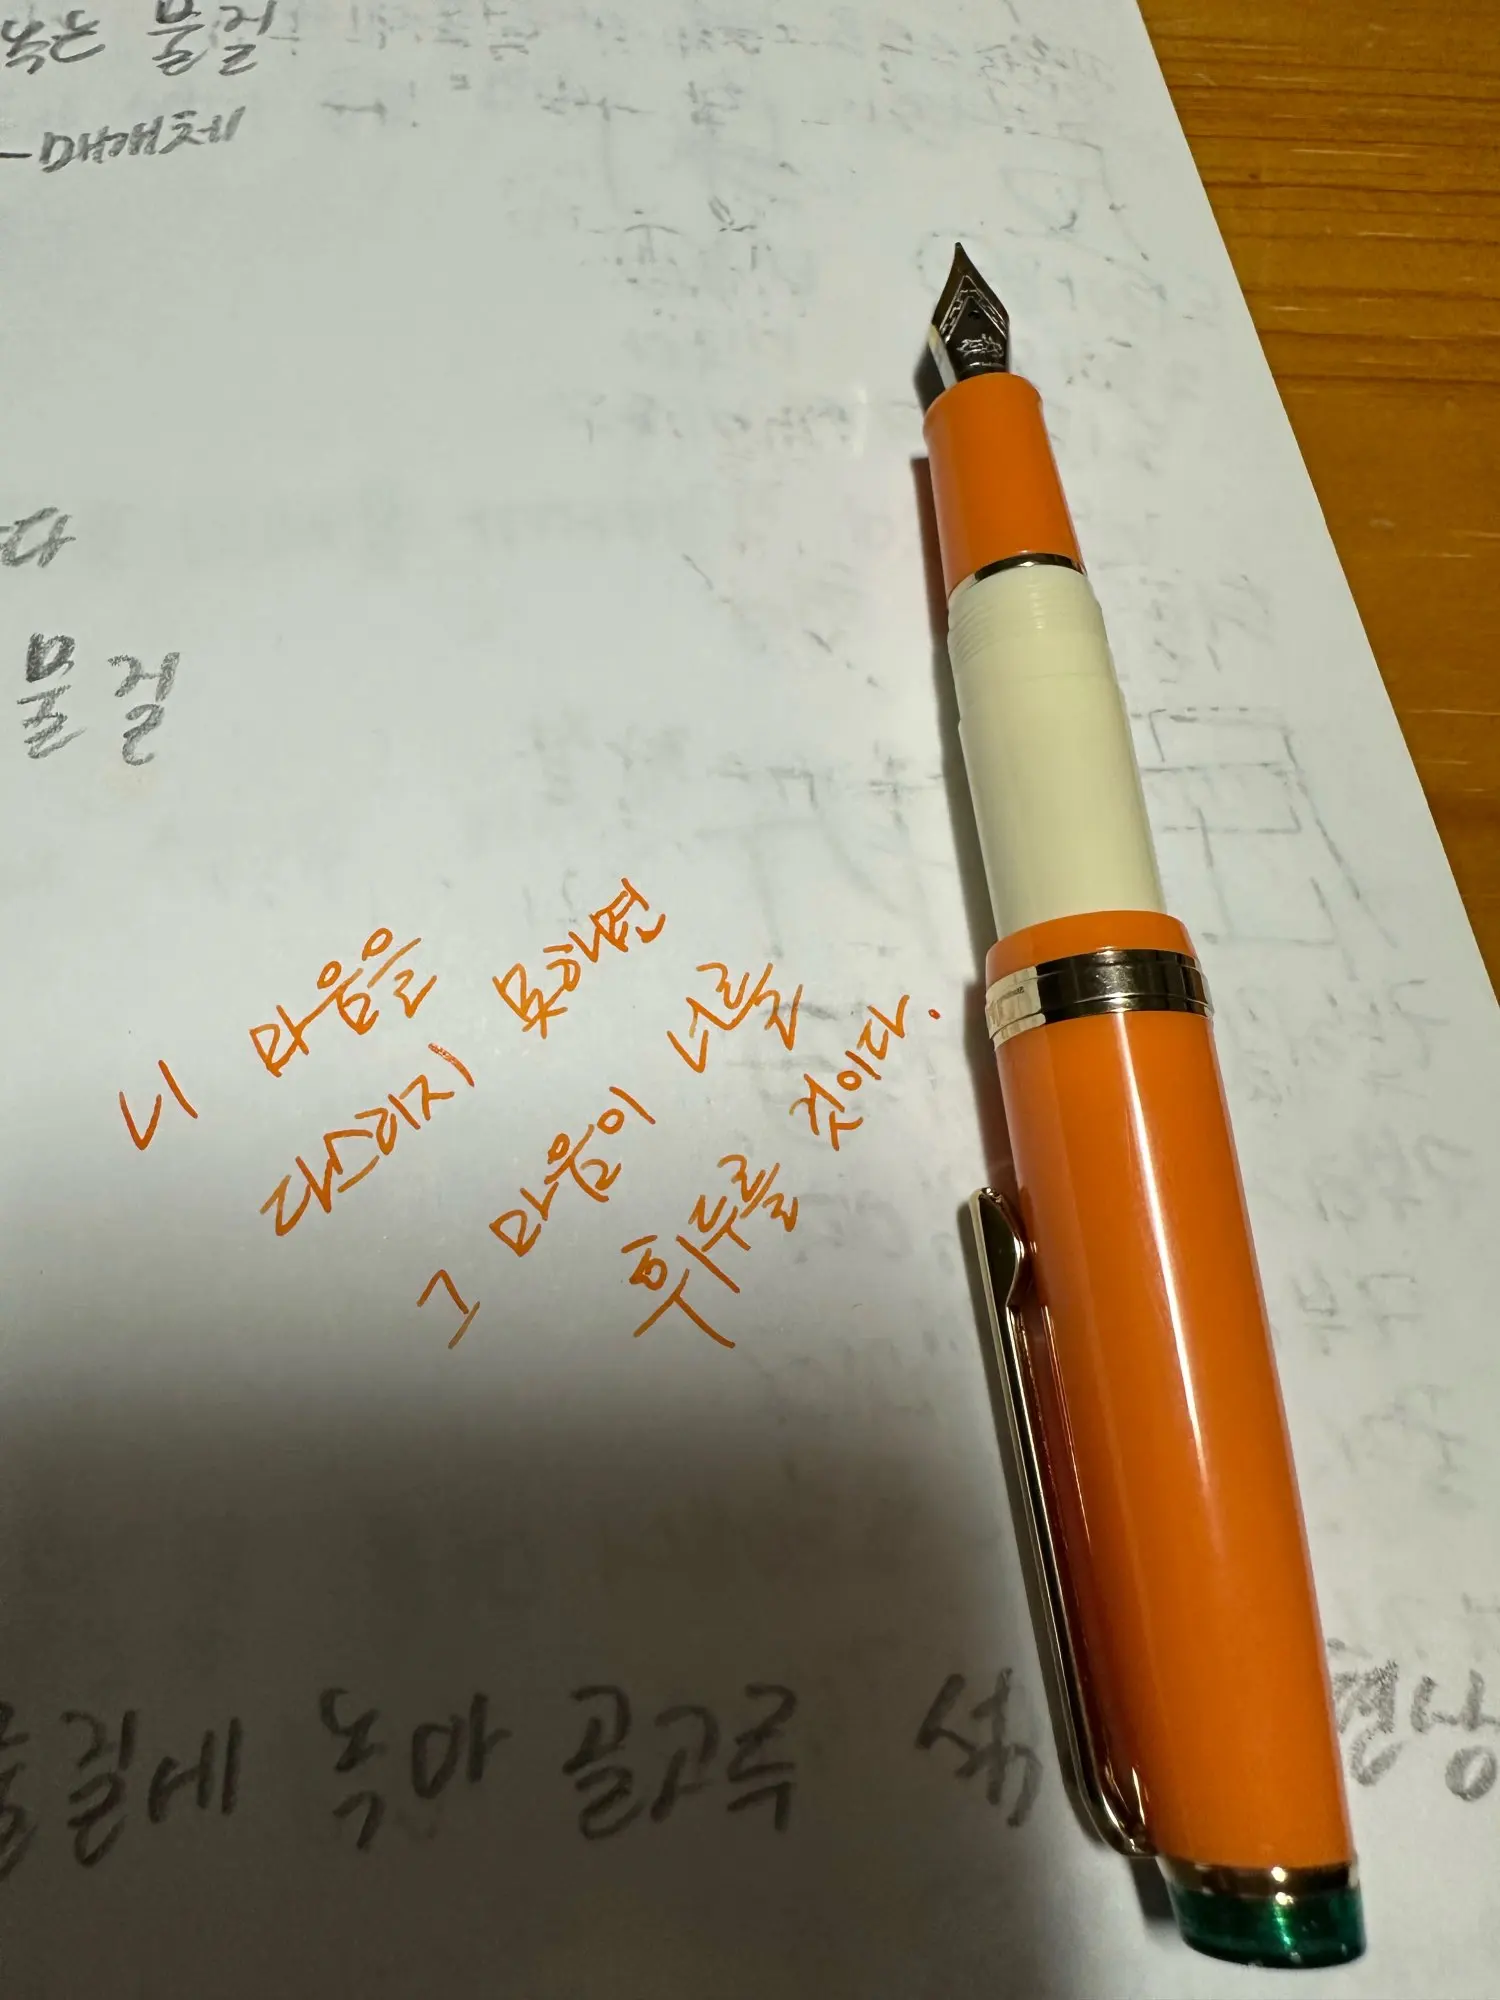 녹는 물질
-매개체
다
물질
니 마음을
다스리지 못하면
그 마음이 너를
휘두를 것이다.
물질에 녹아 골고루 섞 현상